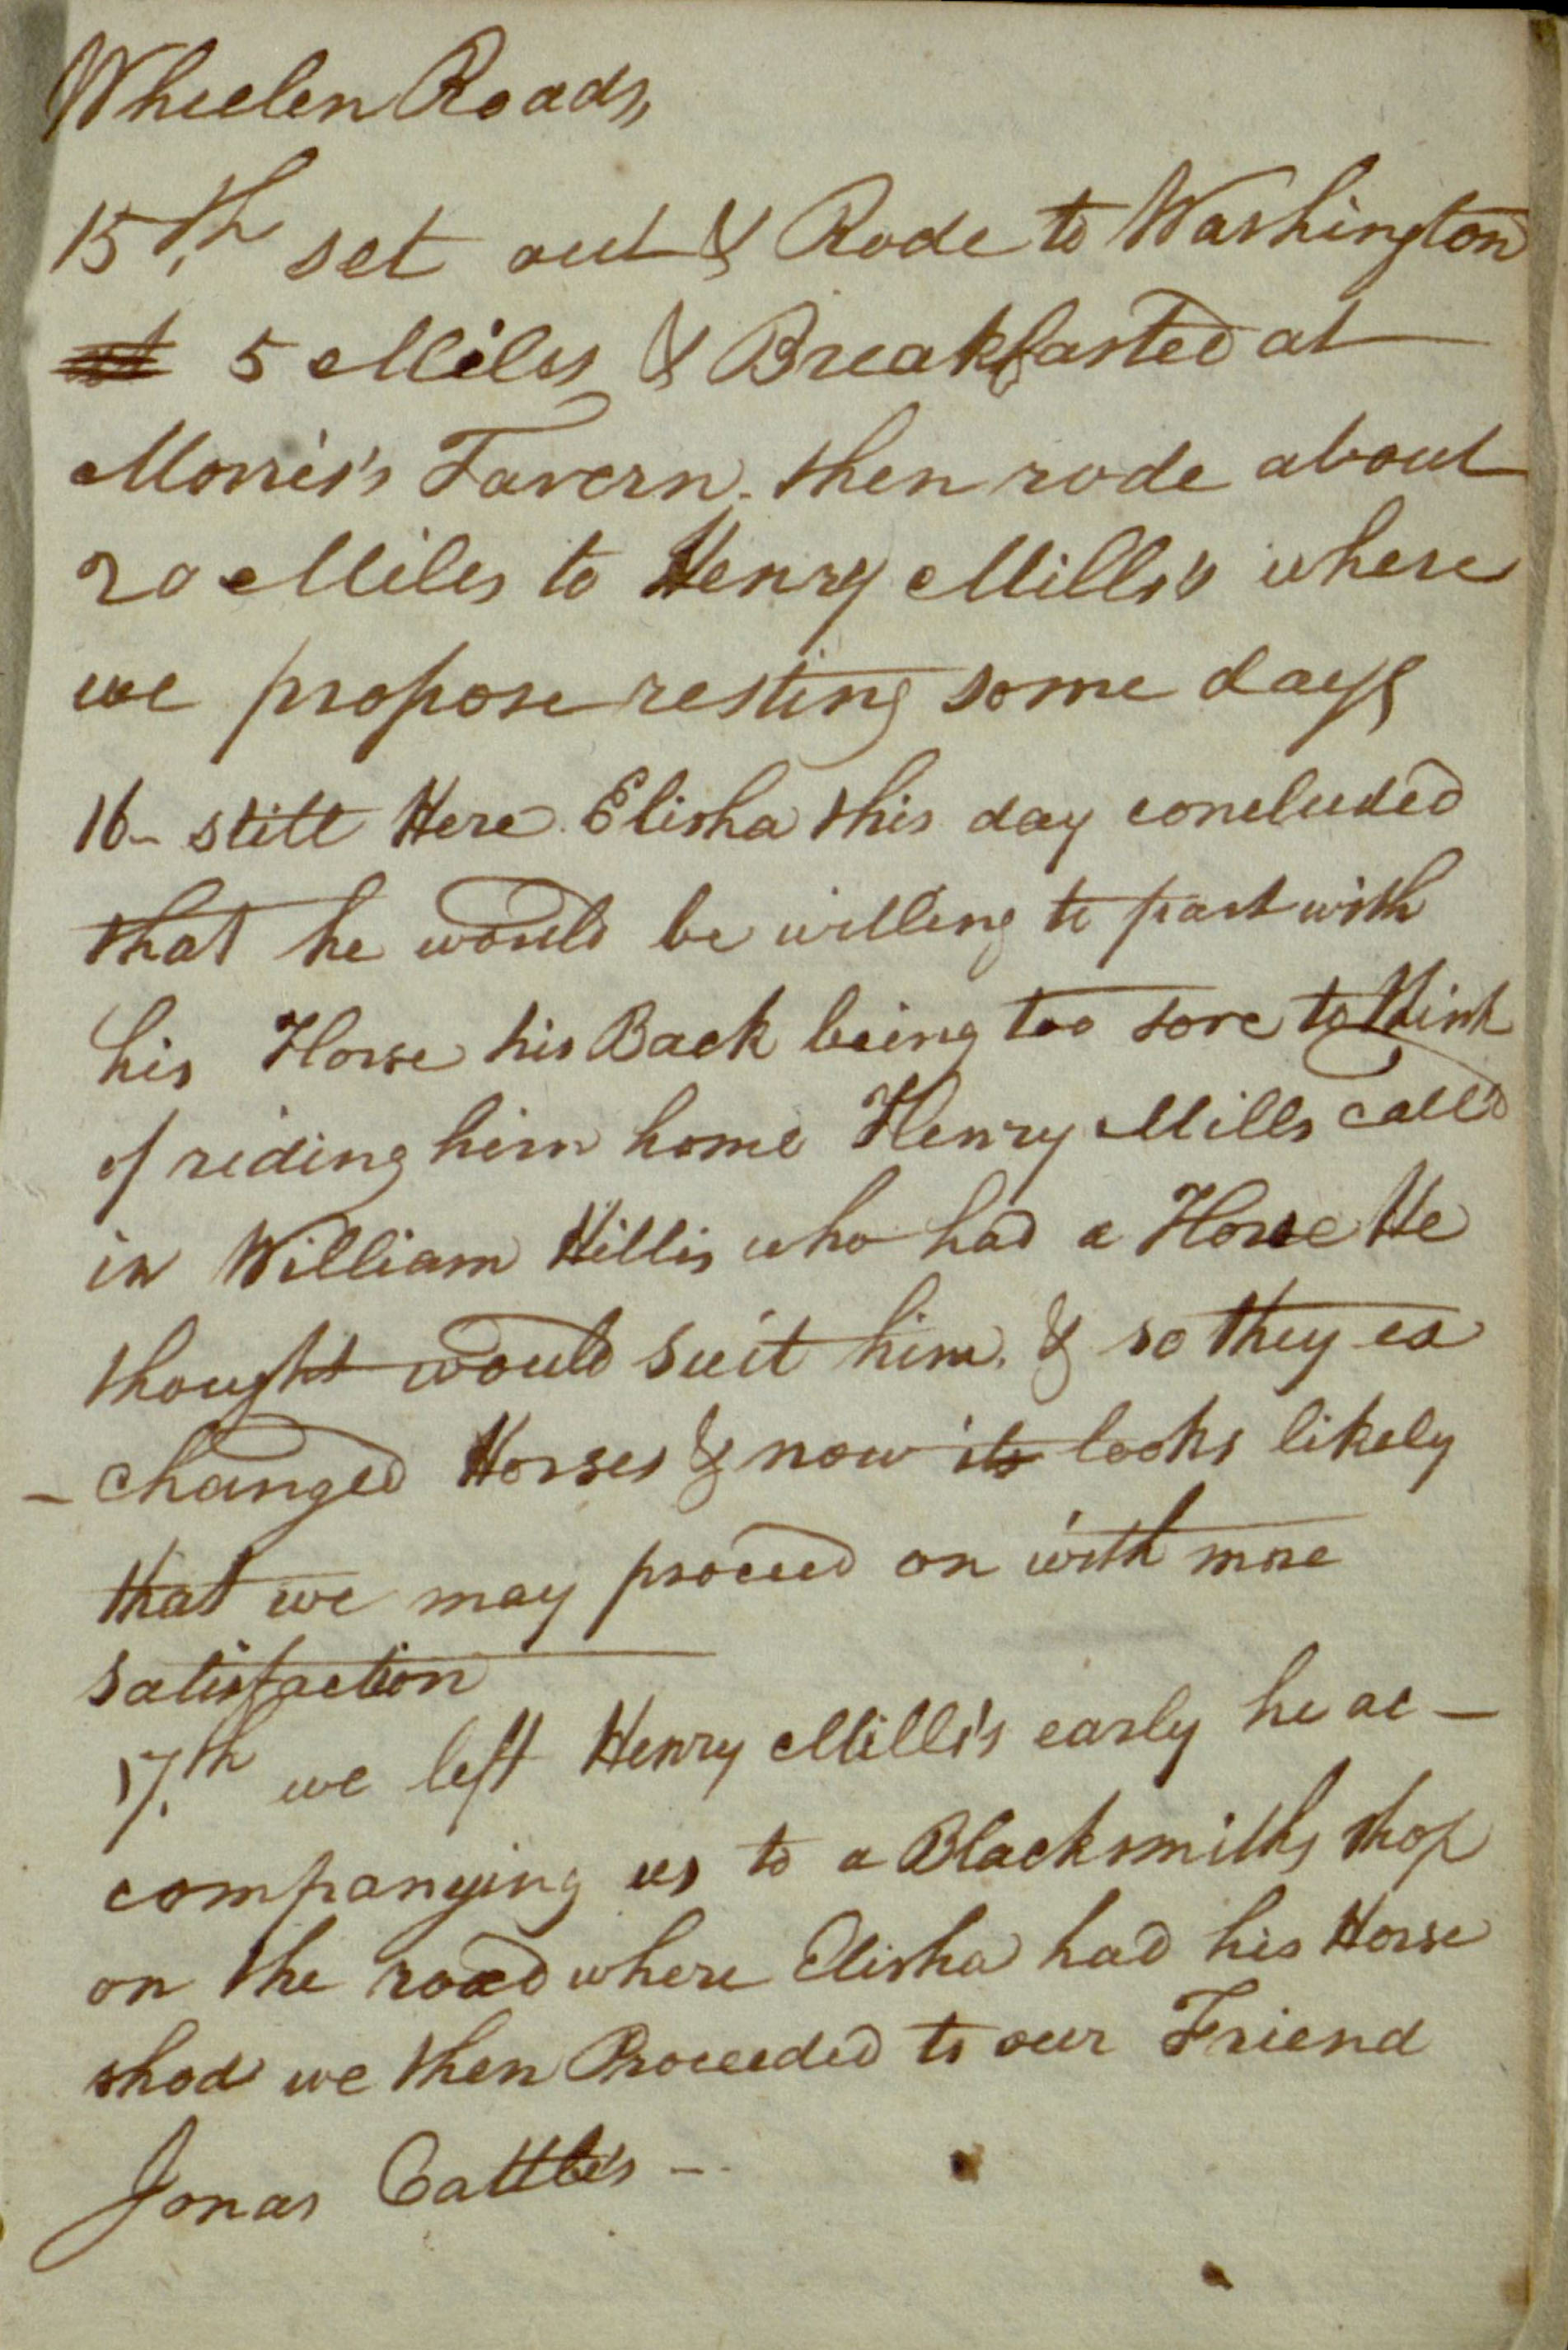 Wheelen Roads,
15th, set out & Rode to Washington
5 Miles & Breakfasted at
Morris's Tavern. then rode about
20 Miles to Henry Mills's where
we propose resting some days
16- still Here. Elisha this day concluded
that he would be willing to part with
his Horse his Back being too sore to think
of riding him home Henry Mills call'd
in William Hillis who had a Horse He
thought would suit him. & so they ex
- changed Horses & now it looks likely
that we may proceed on with more
satisfaction
17.th we left Henry Mills's early he ac-
companying us to a Blacksmiths shop
on the road where Elisha had his Horse
shod we then Proceeded to our Friend
Jonas Cattle's -